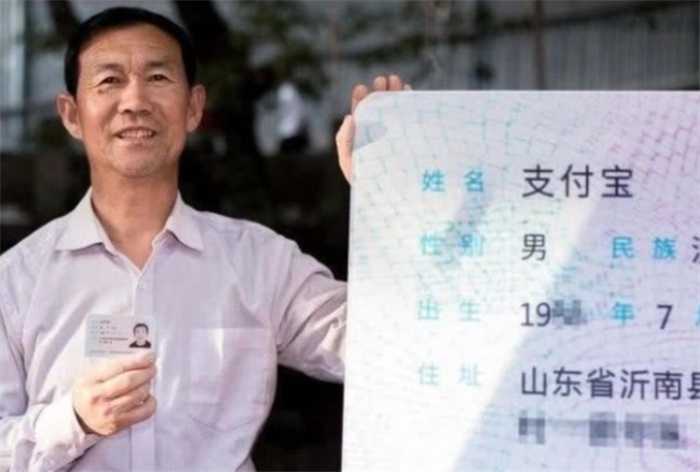 姓名 支付宝
性别 男 民族
出生 19 年 7
住址 山东省沂南县